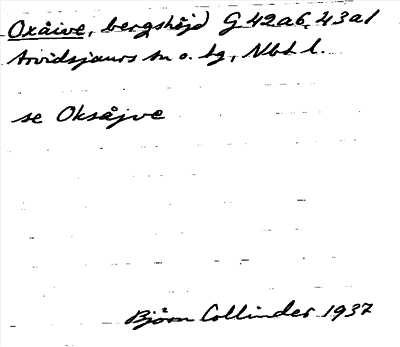 Oxåive, bergshöjd G 42a6, 43a1
Arvidsjaurs sn o. lg, Nbt l.
se Oksåjve
Björn Collinder 1937